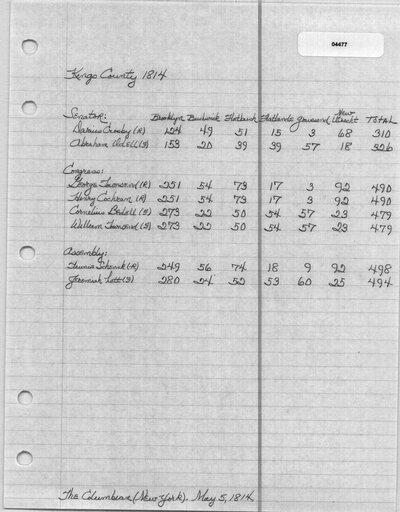 04477
Kings County 1814
Senator: Brooklyn Bushwick Flatbush Flatlands Gravesend New Utrecht Total
Darius Crosby (R) 124 49 51 15 3 68 310
Abraham Odell (F) 153 20 39 39 57 18 326
Congress:
George Townsend (R) 251 54 73 17 3 92 490
Henry Cochram (R) 251 54 73 17 3 92 490
Cornelius Bedell (F) 273 22 50 54 57 23 479
William Townsend (F) 273 22 50 54 57 23 479
Assembly:
Schenck (R) 249 56 74 18 9 92 498
Jeremiah Lott (F) 280 24 52 53 60 25 494
The Columbian (New York). May 5, 1814